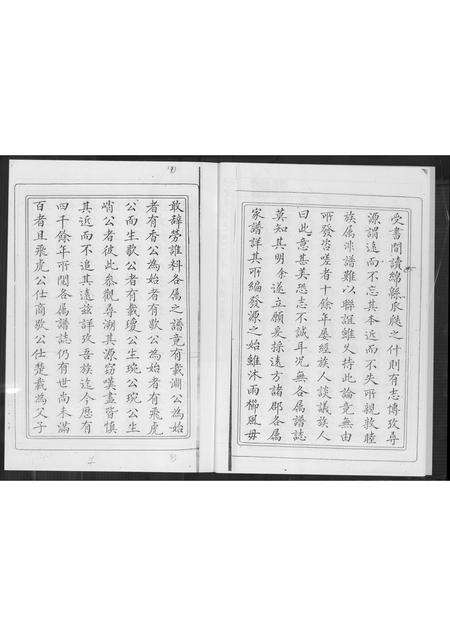 受書間讀綿緜瓜瓞之什則有志博攷尋
源謂遠而不忘其本近而不失所親敦睦
族属非譜難以聯誼雖久持此論竟無由
所發咨嗟者十余年屡經族人談議族人
曰此意甚美恐志不誠耳况無各属譜誌
莫知其明余遂立願爰採遠方諸郡各属
家譜詳其所編發源之始雖沐雨櫛風毋
敢辞勞誰料各属之譜竟有載澗公為始
者有香公為始者有歇公為始者有飛虎
公而生歇公者有載瓊公生琬公琬公生
峭公者彼此叅觀尋溯其源窃嘆盡皆慎
其近而不追其遠兹詳攷吾族迄今應有
四千餘年所閱各属譜誌仍有世尚未滿
百者且飛虎公仕商歇公仕楚載為父子